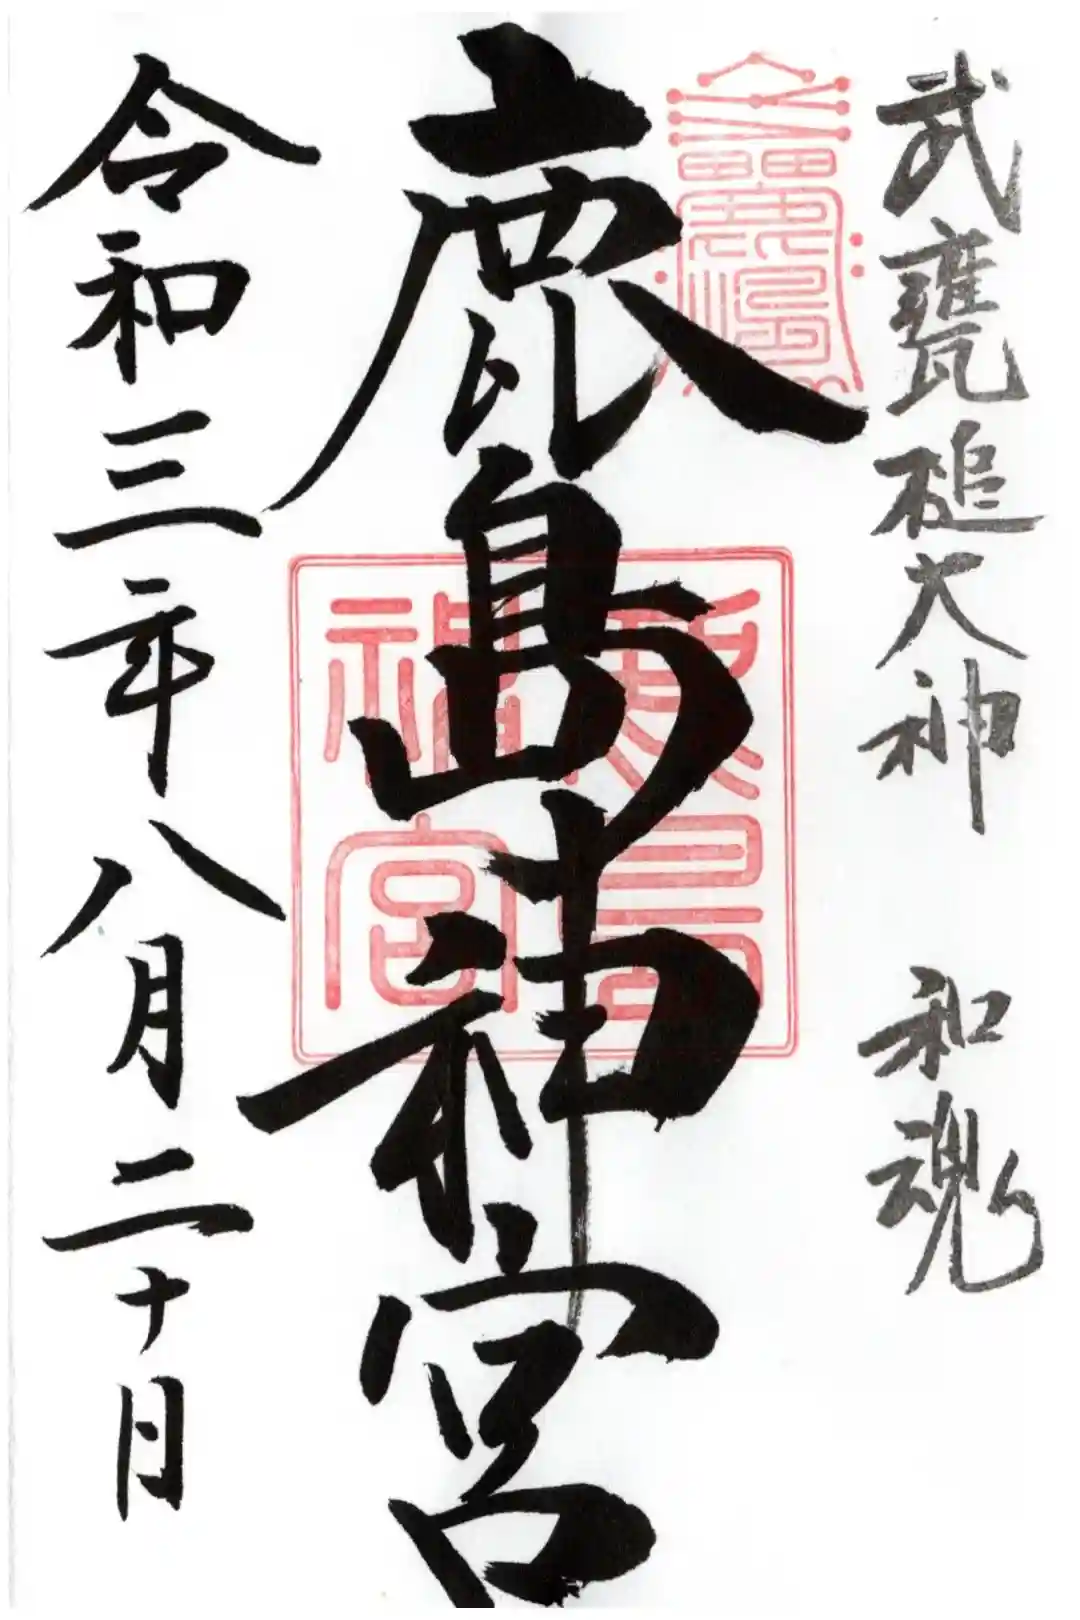 武甕槌大神　和魂
鹿島神宮
令和三年八月二十日
鹿島
神宮